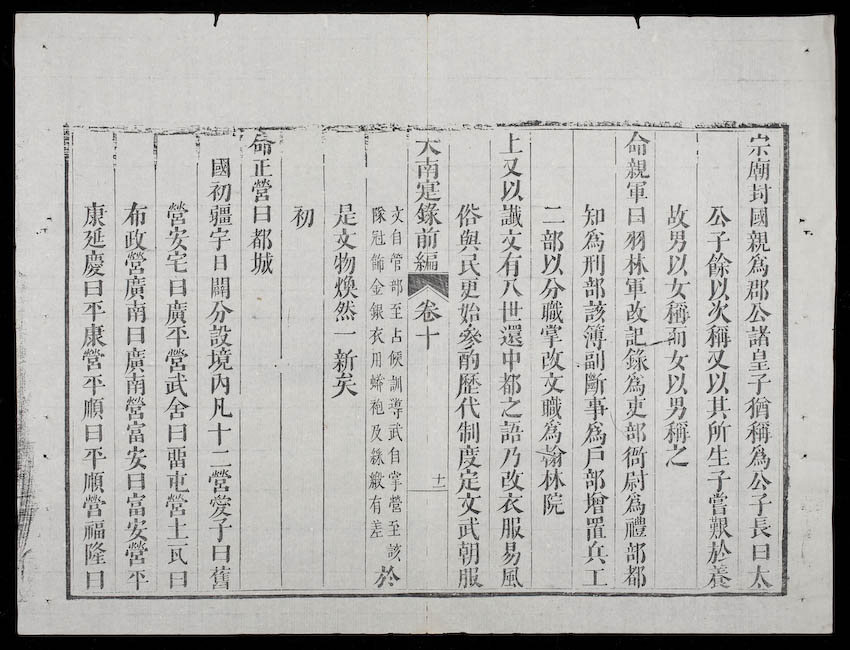 宗廟封國親為郡公諸皇子猶稱為公子長曰太
公子餘以次稱又以其所生子嘗艱於養
故男以女稱而女以男稱之
命親軍曰羽林軍改記錄為吏部衙尉為禮部都
知為刑部該簿副斷事為戶部增置兵工
二部以分職掌改文職為翰林院
上又以讖文有八世還中都之語乃改衣服易風
俗與民更始參酌歷代制度定文武朝服
大南寔錄前編 卷十 十一
文自管部至占候訓導武自掌營至該
隊冠飾金銀衣用蟒袍及絲緞有差
於
是文物煥然一新矣
初
命正營曰都城
國初疆宇日闢分設境內凡十二營愛子曰舊
營安宅曰廣平營武舍曰畱屯營土瓦曰
布政營廣南曰廣南營富安曰富安營平
康延慶曰平康營平順曰平順營福隆曰